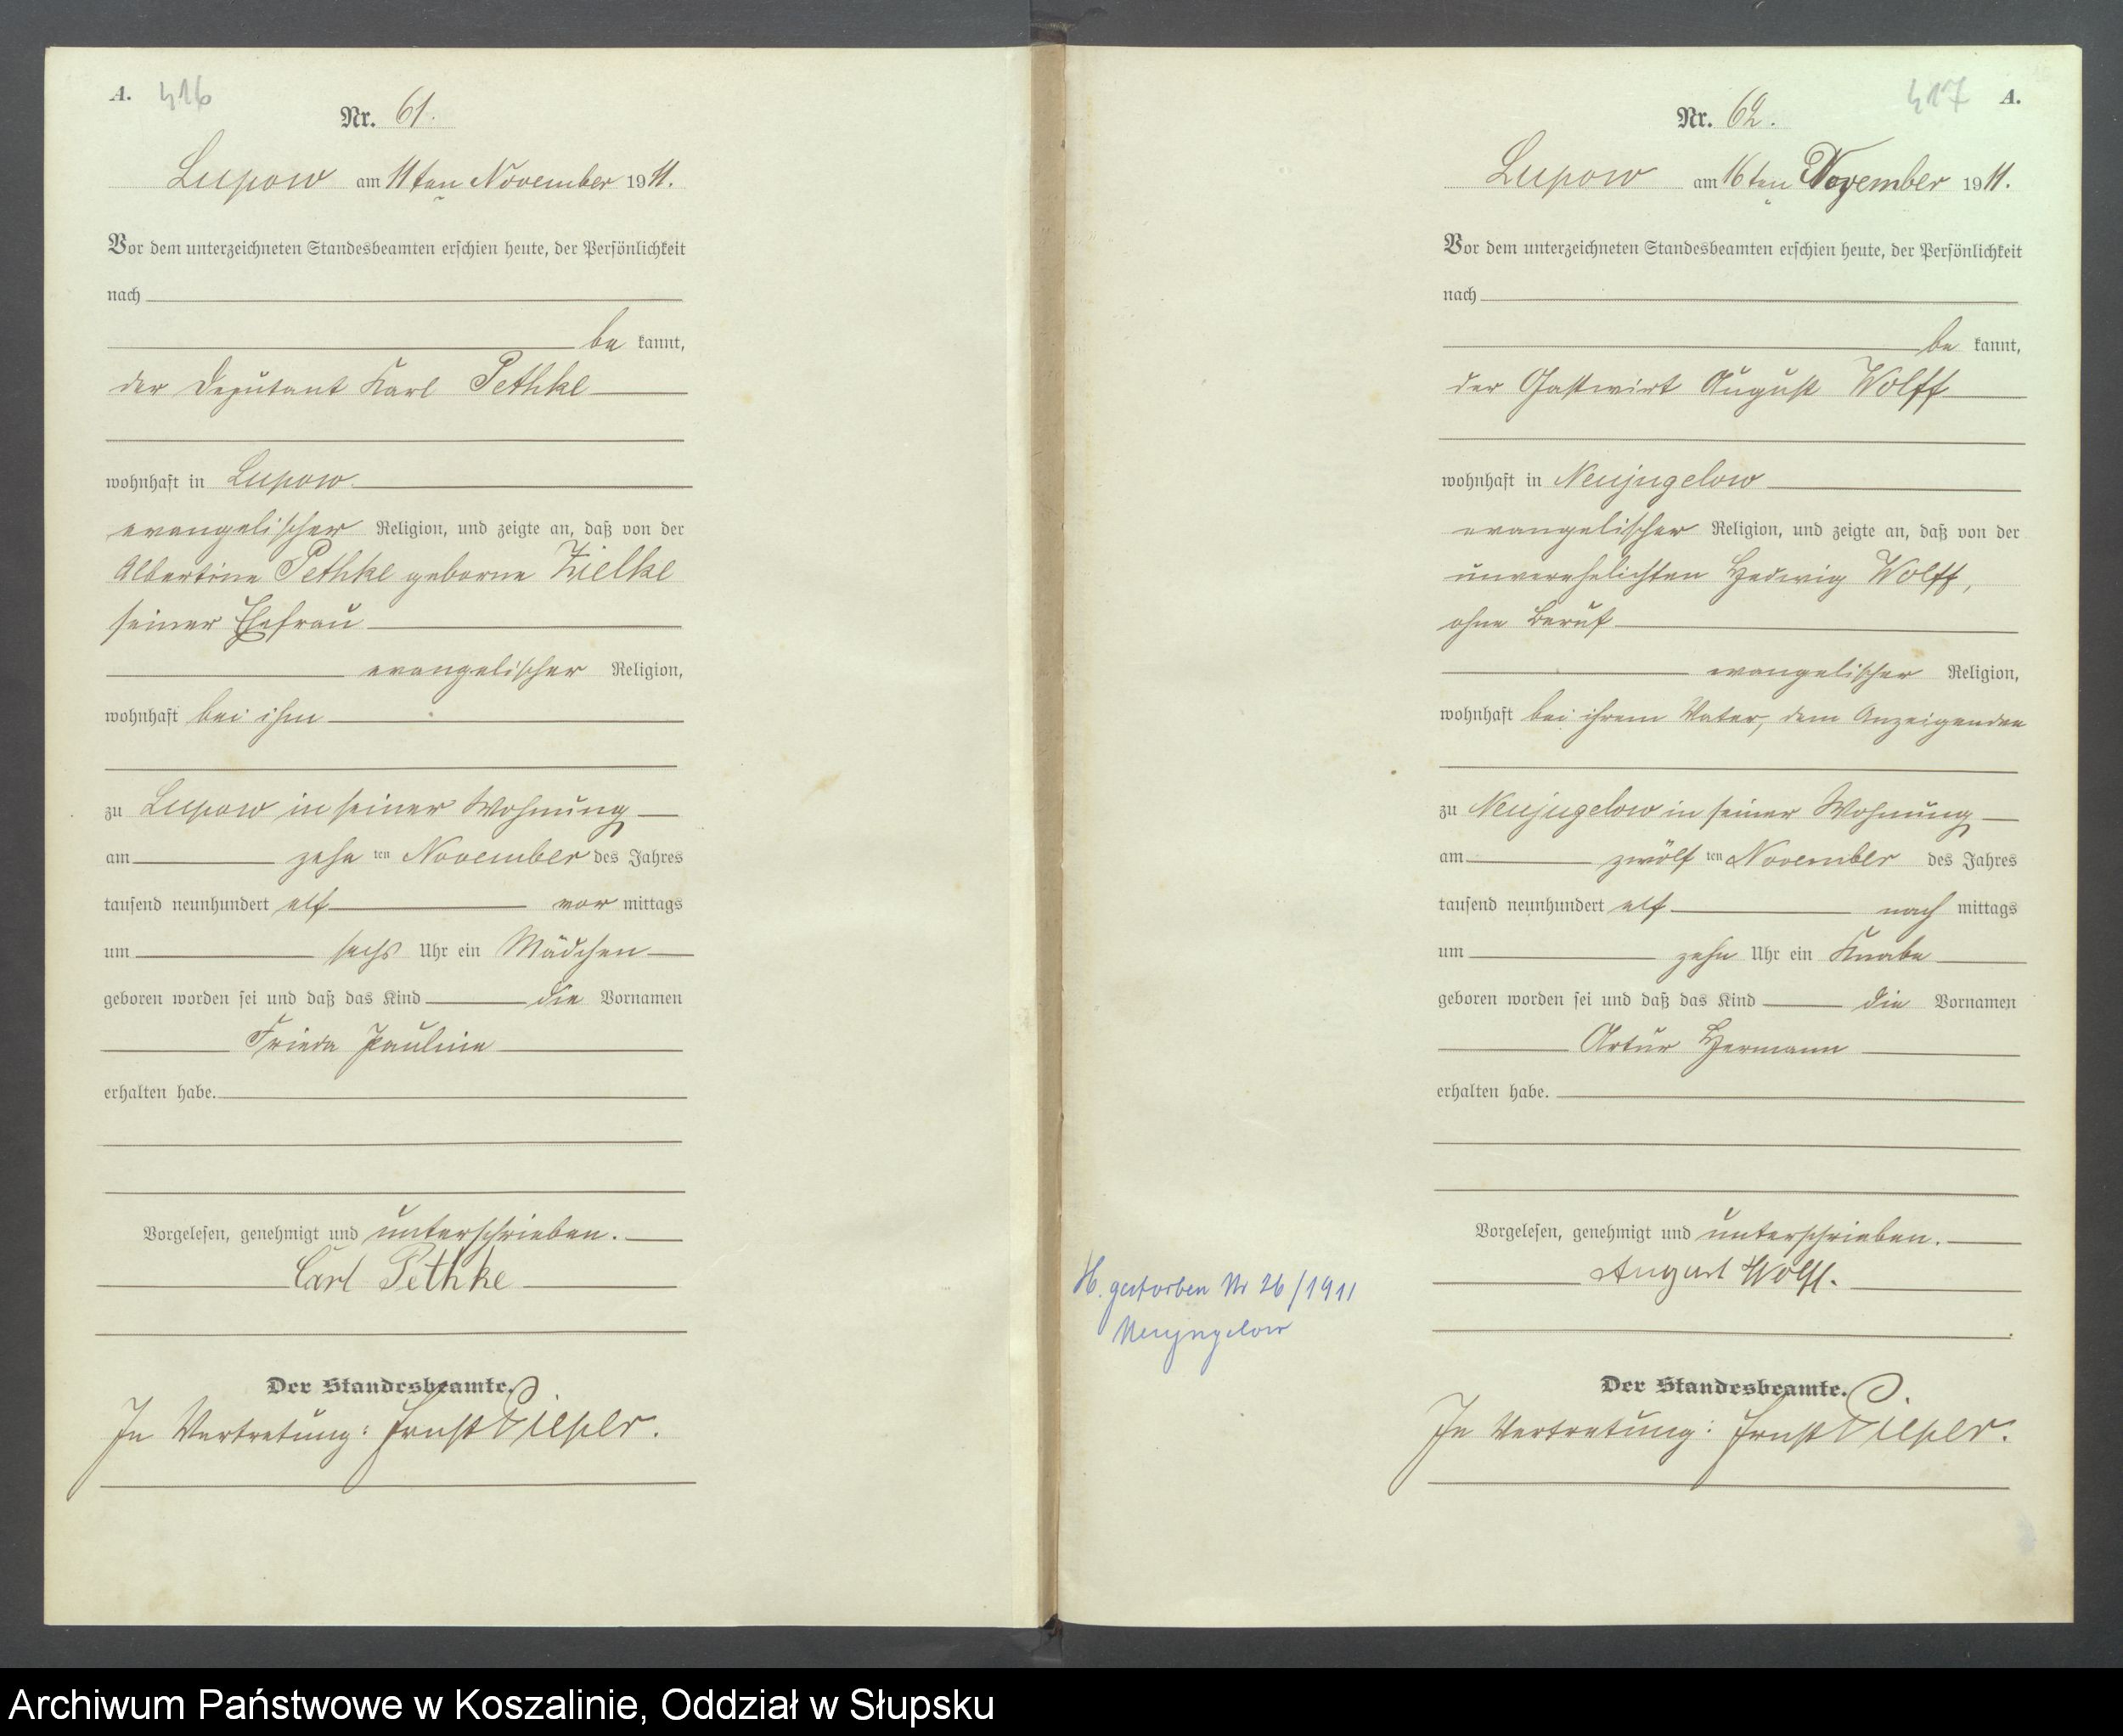 A. 416
Nr. 61.
Lupow am 11ten November 1911.
Vor dem unterzeichneten Standesbeamten erschien heute, der Persönlichkeit
nach
be kannt,
der Deputant Karl Pethke
wohnhaft in Lupow
evangelischer Religion, und zeigte an, daß von der
Albertine Pethke geborne Zielke
seiner Ehefrau
evangelischer Religion,
wohnhaft bei ihm
zu Lupow in seiner Wohnung
am zehn ten November des Jahres
tausend neunhundert elf vor mittags
um sechs Uhr ein Mädchen
geboren worden sei und daß das Kind die Vornamen
Frieda Pauline
erhalten habe.
Vorgelesen, genehmigt und unterschrieben.
Carl Pethke
Der Standesbeamte.
In Vertretung: Ernst Pieper.
417 A.
Nr. 62.
Lupow am 16ten November 1911.
Vor dem unterzeichneten Standesbeamten erschien heute, der Persönlichkeit
nach
be kannt,
der Gastwirt August Wolff
wohnhaft in Neujugelow
evangelischer Religion, und zeigte an, daß von der
unverehelichten Hedwig Wolff,
ohne Beruf
evangelischer Religion,
wohnhaft bei ihrem Vater, dem Anzeigenden
zu Neujugelow in seiner Wohnung
am zwölf ten November des Jahres
tausend neunhundert elf nach mittags
um zehn Uhr ein Knabe
geboren worden sei und daß das Kind die Vornamen
Artur Hermann
erhalten habe.
Vorgelesen, genehmigt und unterschrieben.
August Wolff.
H. gestorben Nr 26/1911
Neujugelow
Der Standesbeamte.
In Vertretung: Ernst Pieper.
Archiwum Państwowe w Koszalinie, Oddział w Słupsku